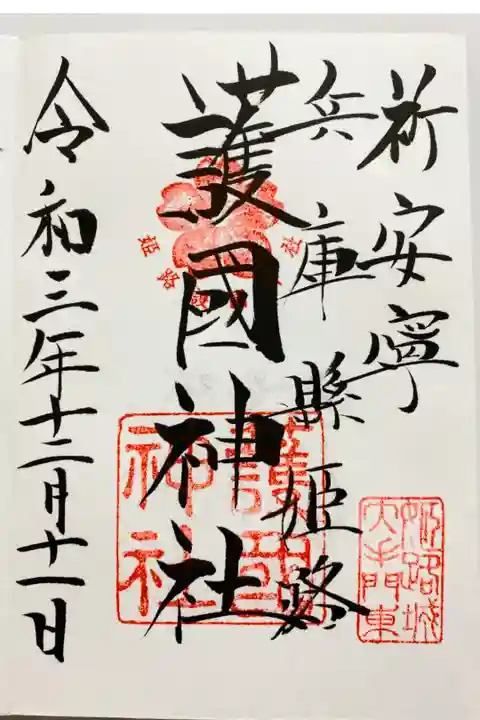 祈安寧
兵庫縣姫路
護國神社
令和三年十二月十一日
護國
神社
姫路城
大手門東